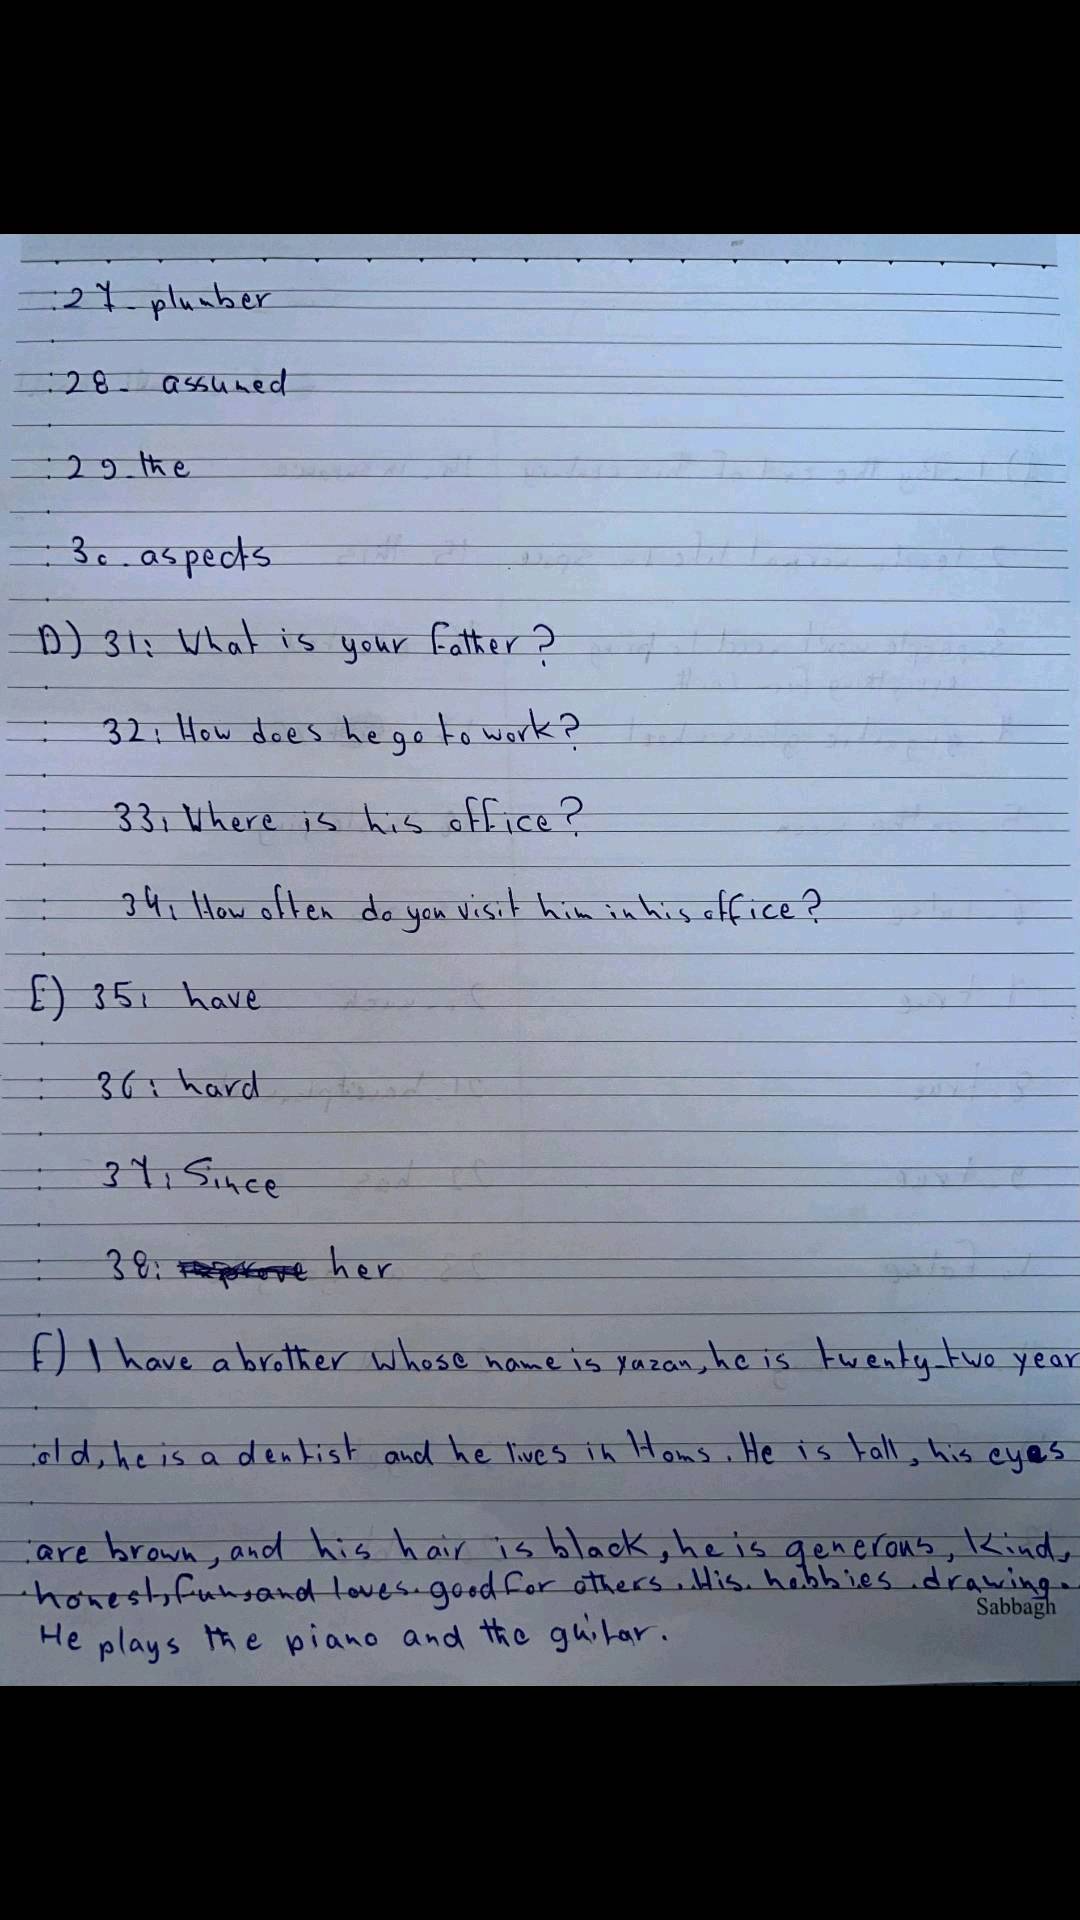 27- plumber
28- assumed
29- the
30- aspects
D) 31: What is your Father?
32: How does he go to work?
33: Where is his office?
34: How often do you visit him in his office?
E) 35: have
36: hard
37: Since
38: her
F) I have a brother whose name is yazan, he is twenty-two year
old, he is a dentist and he lives in Homs. He is tall, his eyes
are brown, and his hair is black, he is generous, kind,
honest, fun, and loves good for others. His hobbies drawing.
Sabbagh
He plays the piano and the guitar.